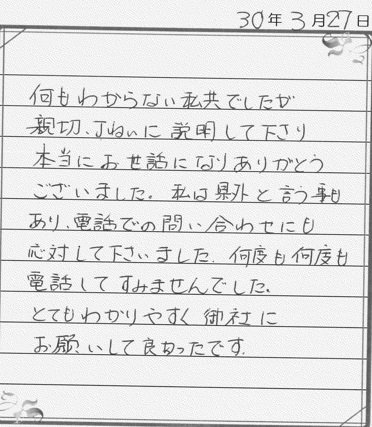 30年3月27日
何もわからない私共でしたが
親切、丁ねいに説明して下さり
本当にお世話になりありがとう
ございました。私は県外と言う事も
あり、電話での問い合わせにも
応対して下さいました。何度も何度も
電話してすみませんでした。
とてもわかりやすく御社に
お願いして良かったです。